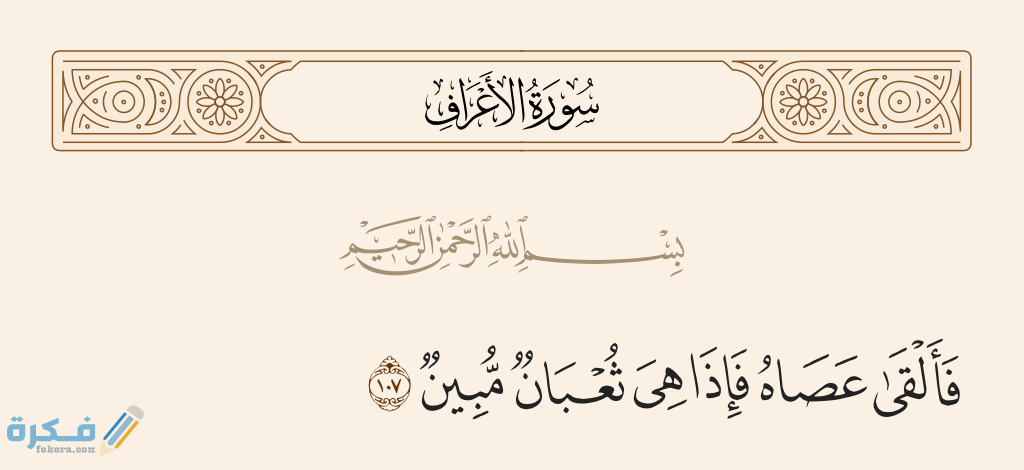 سُورَةُ الأَعْرَافِ
بِسْمِ ٱللَّهِ ٱلرَّحْمَٰنِ ٱلرَّحِيمِ
فَأَلْقَىٰ عَصَاهُ فَإِذَا هِىَ ثُعْبَانٌ مُّبِينٌ ١٠٧
فـكـرة
fekera.com